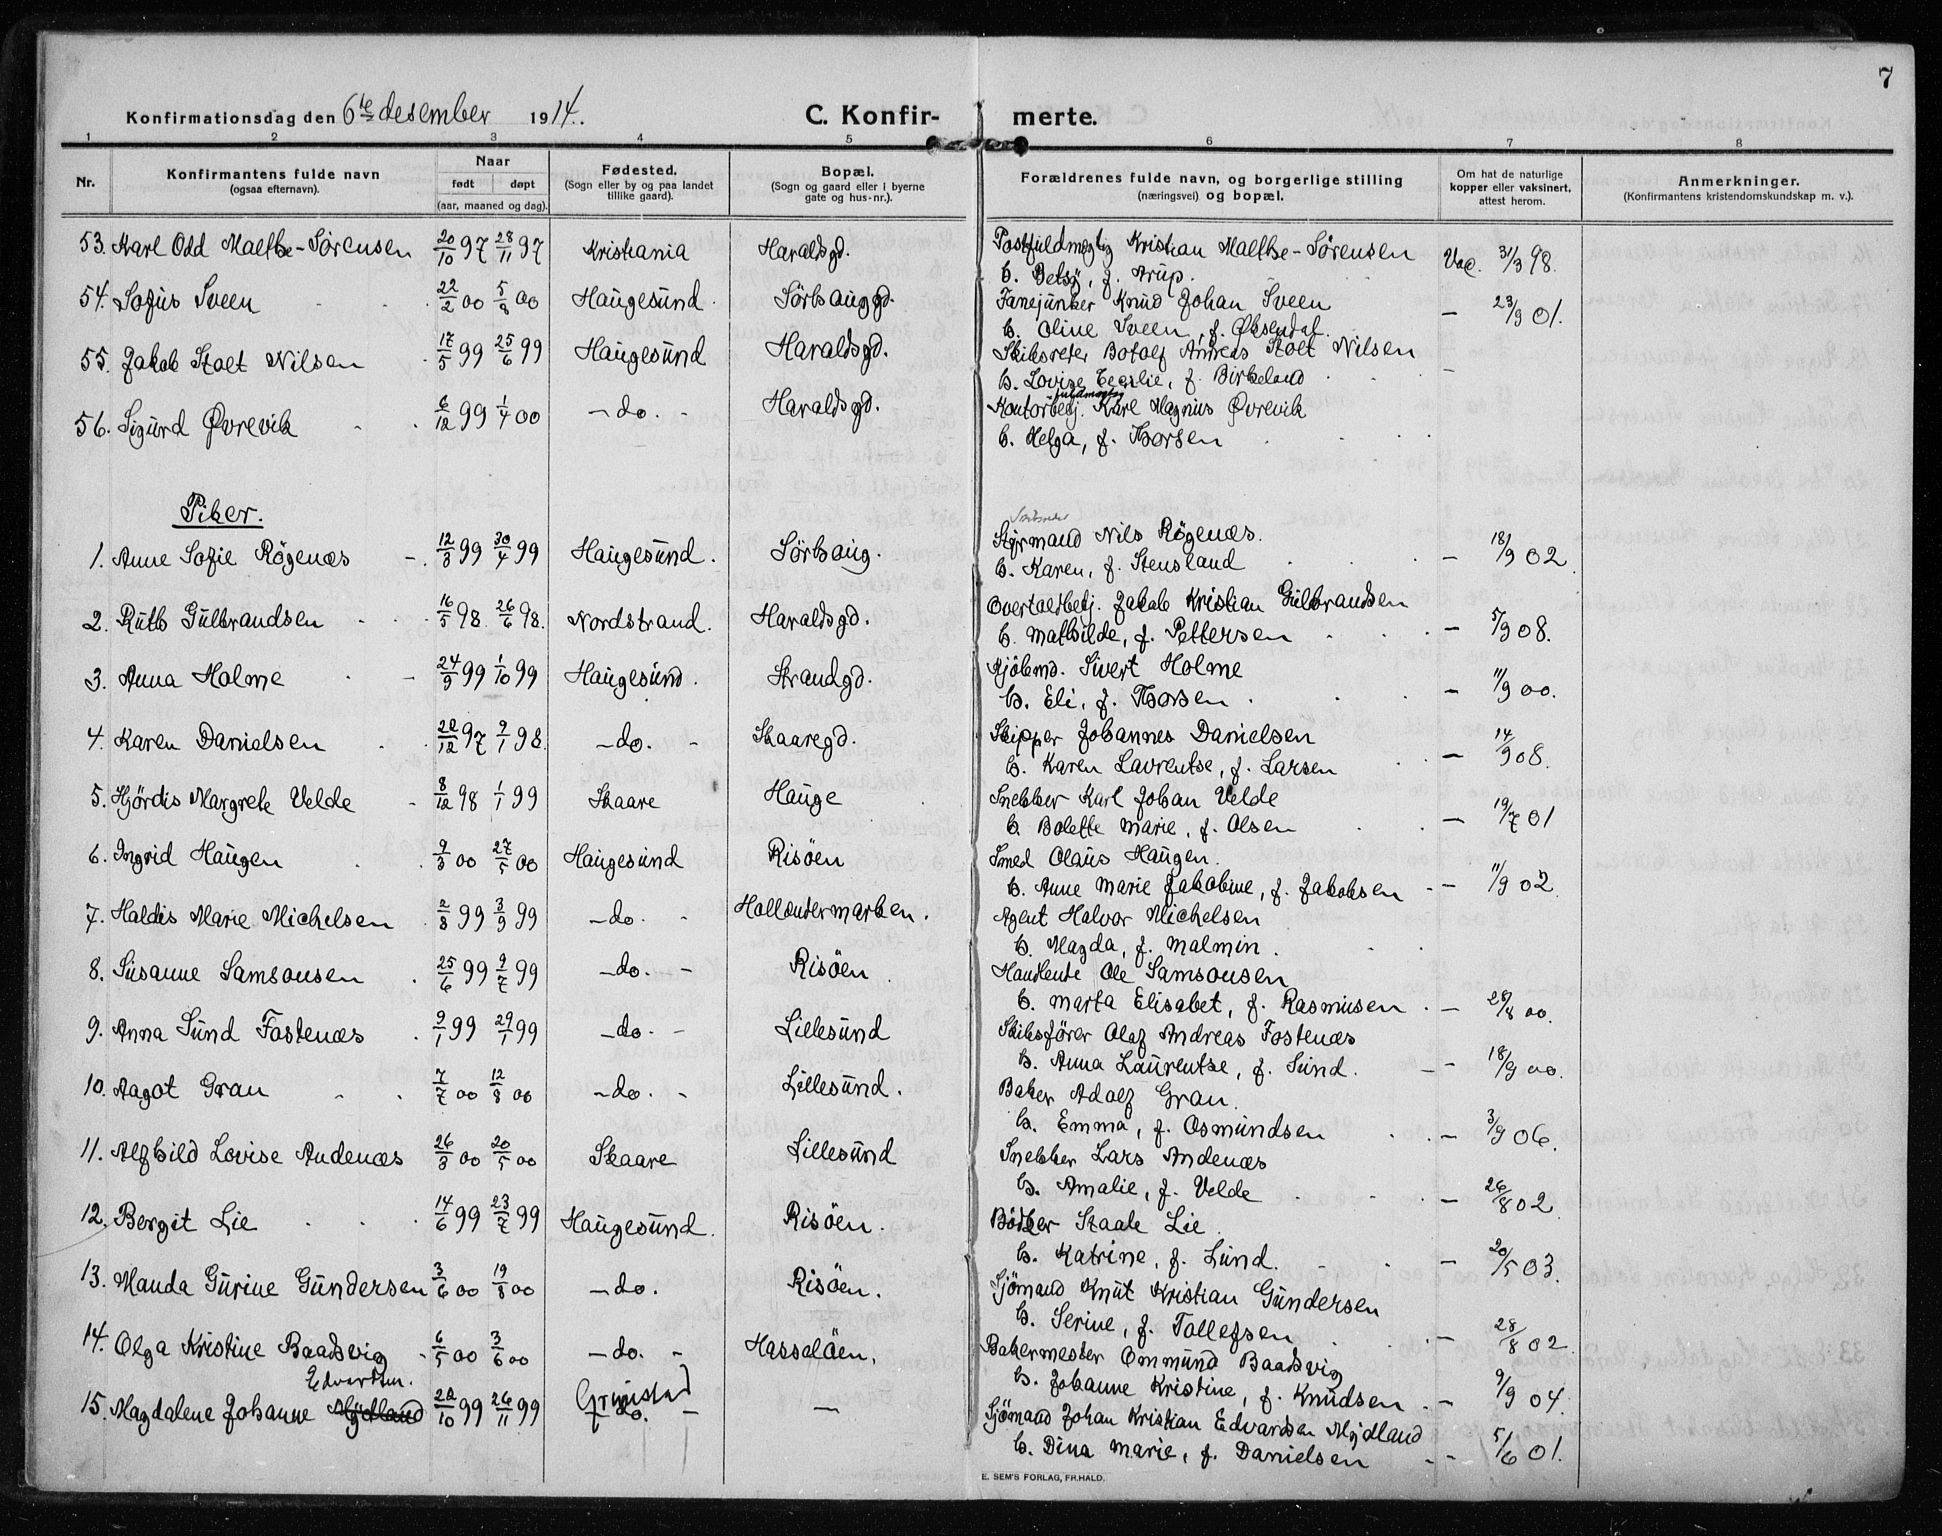 7
Konfirmationsdag den 6te desember 1914. C. Konfirmerte.
1 2 3 4 5 6 7 8
Nr. Konfirmantens fulde navn (ogsaa efternavn). Naar født døpt (aar, maaned og dag). Fødested. (Sogn eller by og paa landet tillike gaard). Bopæl. (Sogn og gaard eller i byerne gate og hus-nr.). Forældrenes fulde navn, og borgerlige stilling (næringsvei) og bopæl. Om hat de naturlige kopper eller vaksinert, attest herom. Anmerkninger. (Konfirmantens kristendomskundskap m. v.).
53. Karl Odd Malthe-Sørensen 20/10 97 28/11 97 Kristiania Haraldsgd. Postfuldmægtig Kristian Malthe-Sørensen Vac. 31/3 98.
h. Betsy, f. Arup.
54. Sofus Sveen 22/2 00 5/8 00 Haugesund. Sørhauggd. Fanejunker Knud Johan Sveen – 23/9 01.
h. Oline Sveen, f. Øksendal.
55. Jakob Stolt Nilsen 17/5 99 25/6 99 Haugesund Haraldsgd. Skibsreder Botolf Andreas Stolt Nilsen –
h. Lovise Cecelie, f. Birkeland
56. Sigurd Øvrevik 6/12 99 1/4 00 – do. – Haraldsgd. Kontorbetj. fuldmægtig Karl Magnus Øvrevik
h. Helga, f. Thorsen
Piker.
1. Anne Sofie Røgenæs 12/3 99 30/4 99 Haugesund. Sørhaug. Styrmand Nils Røgenæs.
h. Karen, f. Stensland – 18/9 02.
2. Ruth Gulbrandsen 16/5 98. 26/6 98. Nordstrand. Haraldsgd. Overtoldbetj. Jakob Kristian Gulbrandsen
h. Mathilde, f. Pettersen – 5/9 08.
3. Anna Holme 24/9 99 1/10 99 Haugesund. Strandgd. Kjøbmd. Sivert Holme
h. Eli, f. Thorsen – 11/9 00.
4. Karen Danielsen 22/12 97 9/1 98. – do. – Skaaregd. Skipper Johannes Danielsen
h. Karen Lavrentse, f. Larsen – 14/9 08.
5. Hjördis Margrete Velde 8/12 98 1/1 99 Skaare Hauge Snekker Karl Johan Velde
h. Bolette Marie, f. Olsen – 19/7 01
6. Ingrid Haugen 9/3 00 27/5 00 Haugesund Risøen Smed Olaus Haugen.
h. Anne Marie Jakobine, f. Jakobsen – 11/9 02.
7. Haldis Marie Michelsen 2/8 99 3/9 99 – do. – Hollendermarken. Agent Halvor Michelsen
h. Magda, f. Malmin.
8. Susanne Samsonsen 25/6 99 9/7 99 – do. – Risøen Handlende Ole Samsonsen
h. Marta Elisabet, f. Rasmusen – 29/8 00.
9. Anna Sund Fostenæs 9/1 99 29/1 99 – do. – Lillesund Skibsfører Olaf Andreas Fostenæs
h. Anna Laurentse, f. Sund. – 18/9 00.
10. Aagot Gran 7/7 00 12/8 00 – do. – Lillesund. Baker Adolf Gran.
h. Emma, f. Osmundsen – 3/9 06.
11. Alfhild Lovise Andenæs 26/3 00 20/5 00 Skaare Lillesund Snekker Lars Andenæs
h. Amalie, f. Velde – 26/8 02.
12. Bergit Lie 14/6 99 23/7 99 Haugesund. Risøen. Bødker Staale Lie
h. Katrine, f. Lund. – 20/5 03.
13. Manda Gurine Gundersen 3/6 00 19/8 00 – do. Risøen. Sjømand Knut Kristian Gundersen
h. Serine, f. Tollefsen – 28/8 02.
14. Olga Kristine Baadsvig 6/5 00 3/6 00 – do. – Hasseløen. Bakermester Ommund Baadsvig
h. Johanne Kristine, f. Knudsen – 9/9 04.
Edvardsen.
15. Magdalene Johanne Mydland 22/10 99 26/11 99 Grimstad – do. – – Sjømand Johan Kristian Edvardsen Mydland
h. Dina Marie, f. Danielsen – 5/6 01.
E. SEM'S FORLAG, FR.HALD.